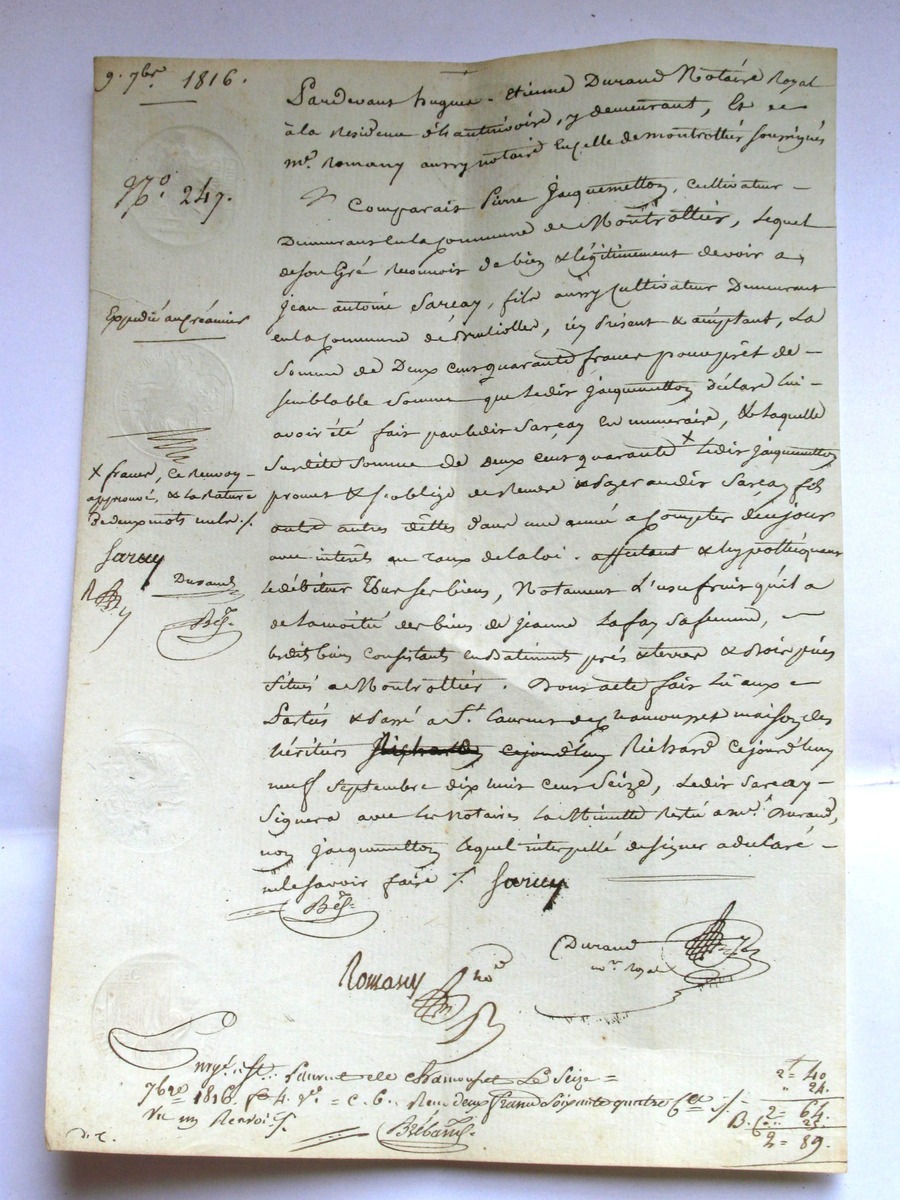 9. 7bre 1816.
N.º 247.
Expédié au Créancier
Pardevant hugues - Etienne Durand Notaire Royal
à la Residence d'hauterivoire, y demeurant, Et
Me. Romany aussy notaire en celle de montrottier soussignés
Comparait Pierre Jacquemetton, cultivateur -
Demeurant en la Commune de Montrottier, Lequel
de son Gré Reconnoit de bien & légitimement devoir a
Jean antoine Sarcay, fils aussy Cultivateur Demeurant
en la Commune de Brullioles, icy Présent & acceptant, La
Somme de Deux cent quarante francs pour prêt de -
semblable Somme que Ledit Jacquemetton déclare lui -
avoir été fait par ledit Sarcay en numeraire, & laquelle
Susdite Somme de deux cent quarante x Ledit Jacquemetton
promet & s'oblige de Rendre & Payer audit Sarcay fils
outre autres dettes dans une année a Compter de ce jour
avec interêts au taux de la loi. affectant & hypothéquant
Le débiteur Tous ses biens, Notament L'usufruit qu'il a
de la moitié des biens de Jeanne Lafay sa femme, -
lesdits biens Consistants en Batiment prés & terres &
Situés a Montrottier. Dont acte fait Lû aux -
Parties & Passé a St. Laurent de Chamousset maison des
héritiers Richard cejourd'huy Richard Cejourd'huy
neuf Septembre dix huit Cent Seize, Ledit Sarcay -
Signera avec les Notaires La Minutte Restée a me. Durand,
non Jacquemetton Lequel interpellé de signer a déclaré -
ne le Savoir faire ./. Sarcay
x francs, Ce Renvoy -
approuvé, & la Rature
De deux mots nulle ./.
Sarcay
Durand
Romany nre
Durand
nre Royal
St. Laurent de Chamousset Le Seize =
7bre 1816. fo 4. Vo = c. 6. Reçu deux francs soixante quatre Ces ./.
Vu un Renvoi ./.
2f = 40
" 24.
2 = 64.
2 = 89.